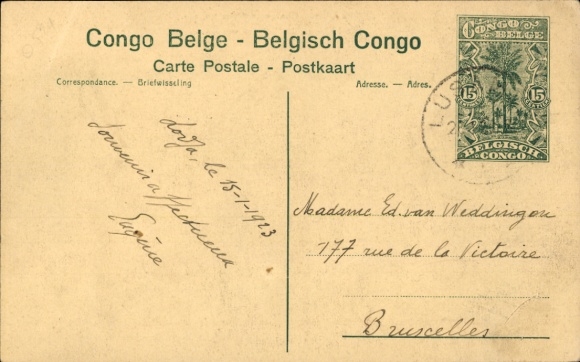 Congo Belge - Belgisch Congo
Carte Postale - Postkaart
Correspondance. — Briefwisseling
Adresse. — Adres.
CONGO
BELGE
15
15
BELGISCH
CONGO
LUS
Lodja, le 15-1-1923
Souvenir affectueux
Eugène
Madame Ed. van Weddingen
177 rue de la Victoire
Bruxelles